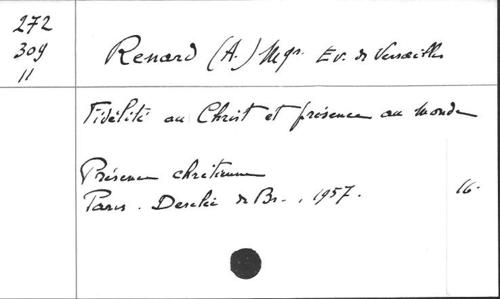 272
309
11
Renard (A.) Mgr. Ev. de Versailles
Fidélité au Christ et présence au monde
Présence chrétienne
Paris. Desclée de Br., 1957.
16.